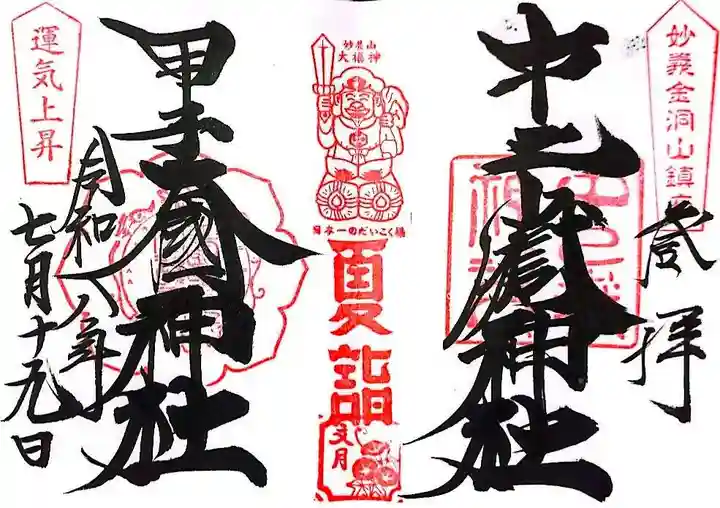 妙義金洞山鎮
登拝
中之嶽神社
妙義山
大福神
日本一のだいこく様
夏詣
文月
甲子大國神社
運気上昇
令和八年
七月十九日